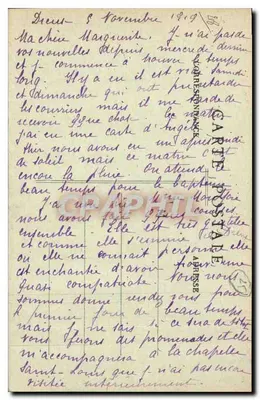 Dreux 3 Novembre 1919
Ma chère Marguerite. Je n'ai pas de
vos nouvelles depuis mercredi dernier
et je commence à trouver le temps
long. Il y a eu il est vrai samedi
et dimanche qui ont pu retarder
les courriers mais il me tarde de
recevoir quelque chose
j'ai eu une carte d'Angèle
Hier nous avons eu un après midi
de soleil mais ce matin c'est
encore la pluie. On attend
beau temps pour le
J'ai
nous avons
ensemble. Elle est très
et comme elle s'ennuie
où elle ne connaît personne elle
est enchantée d'avoir trouvé une
quasi compatriote. Nous nous
sommes donné rendez vous pour
le premier jour de beau temps
mais je ne sais si ce sera
Nous ferons des promenades et elle
m'accompagnera à la chapelle
Saint-Louis que je n'ai pas encore
visitée intérieurement.
CARTE POSTALE
CORRESPONDANCE
ADRESSE
CPAPHIL